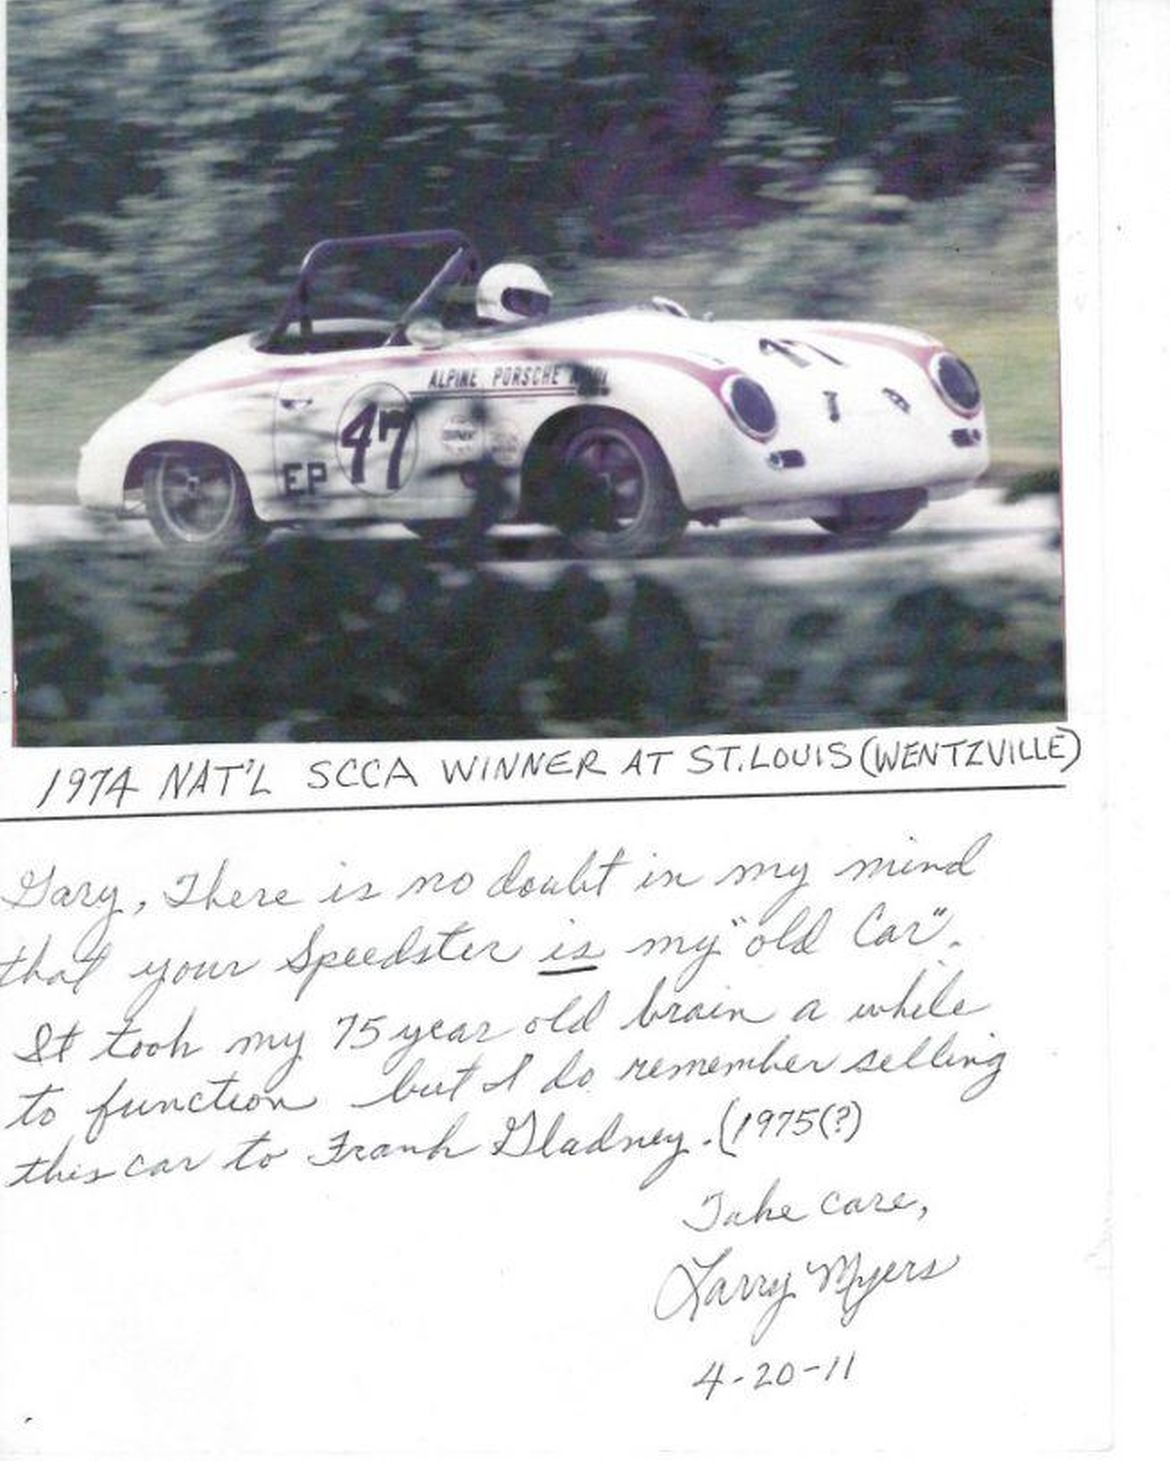 47
ALPINE PORSCHE
47
EP
1974 NAT'L SCCA WINNER AT ST. LOUIS (WENTZVILLE)
Gary, There is no doubt in my mind
that your Speedster is my "old Car".
It took my 75 year old brain a while
to function but I do remember selling
this car to Frank Gladney. (1975(?)
Take care,
Larry Myers
4-20-11